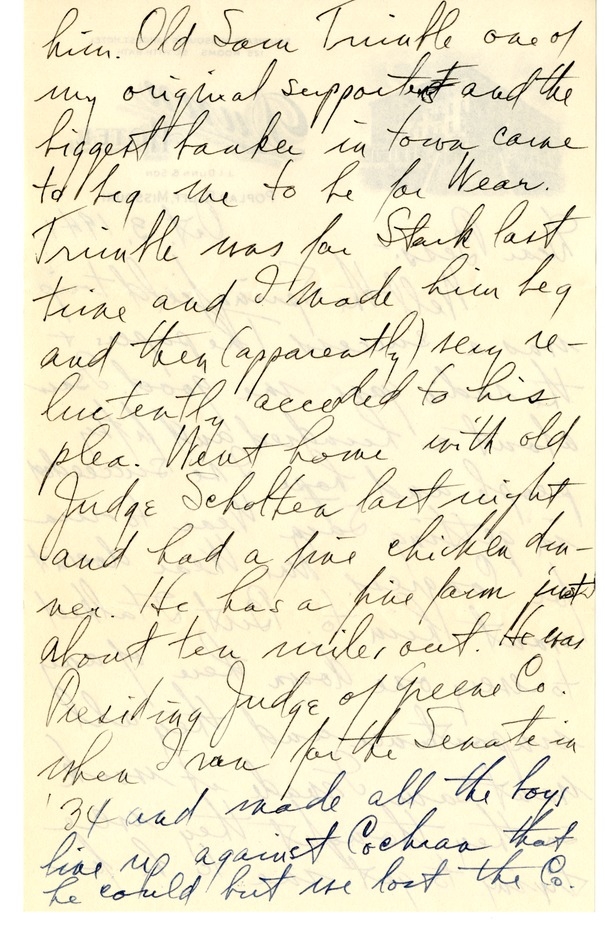 him. Old Sam Trimble one of
my original supporters and the
biggest banker in town came
to beg me to be for Wear.
Trimble was for Stark last
time and I made him beg
and then (apparently) very re-
luctently acceded to his
plea. Went home with old
Judge Scholten last night
and had a fine chicken din-
ner. He has a fine farm just
about ten miles out. He was
Presiding Judge of Greene Co.
when I ran for the Senate in
'34 and made all the boys
line up against Cochran that
he could but we lost the Co.